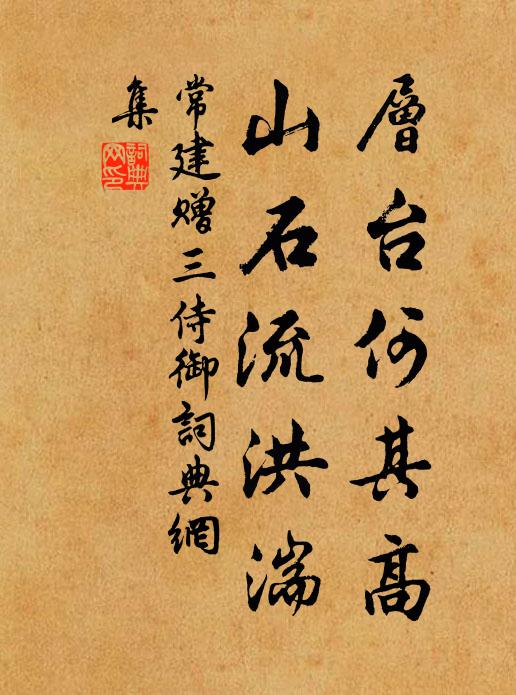 層台何其高
山石流洪湍
常建贈三侍御詞典網
集
詞典
网印